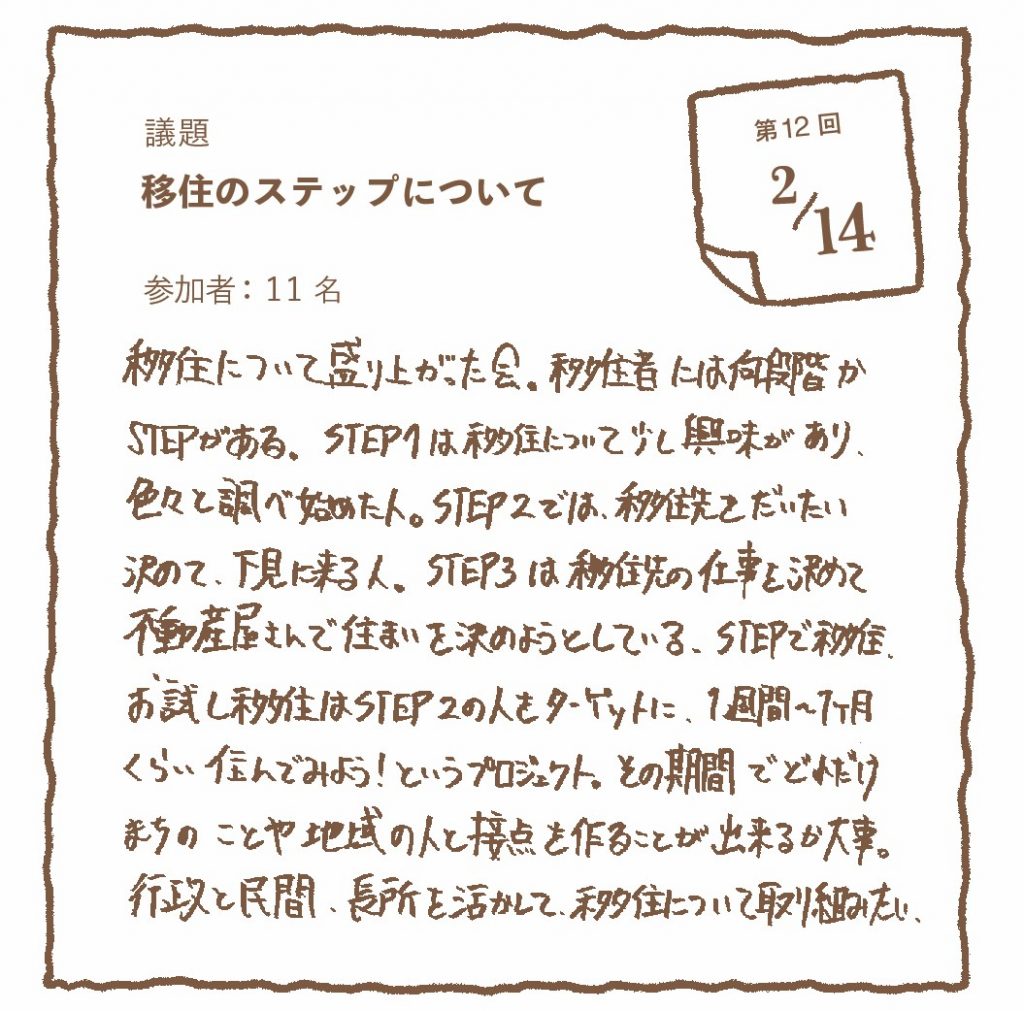 議題
移住のステップについて
第12回
2/14
参加者：11名
移住について盛り上がった会。移住者には何段階か
STEPがある。STEP1は移住について少し興味があり、
色々と調べ始めた人。STEP2では、移住先をだいたい
決めて、下見に来る人。STEP3は移住先の仕事を決めて
不動産屋さんで住まいを決めようとしている、STEPで移住、
お試し移住はSTEP2の人をターゲットに、1週間～1ヶ月
くらい住んでみよう！というプロジェクト。その期間でどれだけ
まちのことや地域の人と接点を作ることが出来るか大事。
行政と民間、長所を活かして、移住について取り組みたい、